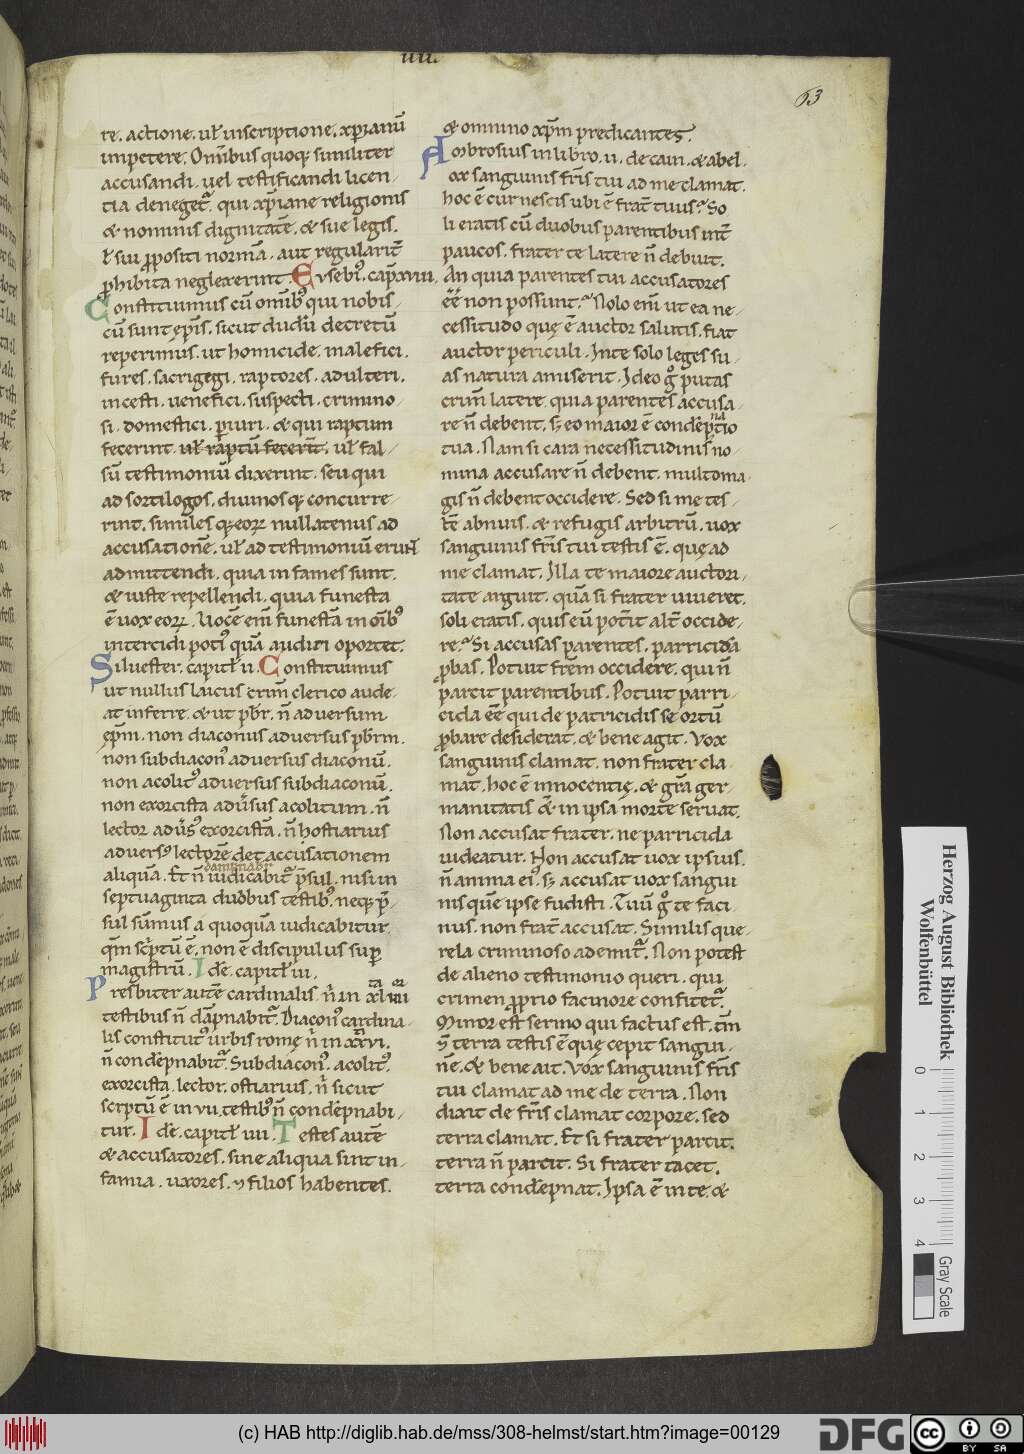 IIII.
63
re. actione. ul̄ inscriptione. xp̄ianū
inpetere. Om̄ibus quoq; similiter
accusandi. uel testificandi licen-
tia denegetᷣ. qui xp̄iane religionis
& nominis dignitatē. & sue legis.
ł sui ꝓpositi normā. aut regularit̄
ꝓhibita neglexerint. Eusebiꝰ. cap̄. xvııı.
Constituimus cū om̄ibꝰ qui nobis-
cū sunt ep̄is. sicut dudū decretū
reperimus. ut homicide. malefici.
fures. sacrigegi. raptores. adulteri.
incesti. uenefici. suspecti. crimino-
si. domestici. ꝑiuri. & qui raptum
fecerint. ul̄ raptū fecerīt. ul̄ fal-
sū testimoniū dixerint. seu qui
ad sortilogos. diuinosq; concurre-
rint. similes q; eoꝝ nullatenus ad
accusationē. ul̄ ad testimoniū erunt
admittendi. quia infames sunt.
& iuste repellendi. quia funesta
ē uox eoꝝ. Uocē em̄ funestā in oīb;ꝰ
intercidi potiꝰ quā audiri oportet.
Siluester. capitł ıı. Constituimus
ut nullus laicus crim̄ clerico aude-
at inferre. & ut pb̄r. n̄ aduersum
ep̄m. non diaconus aduersus pb̄rm.
non subdiaconꝰ aduersus diaconū.
non acolitꝰ aduersus subdiaconū.
non exorcista adūsus acolitum. n̄
lector adūsꝰ exorcistā. n̄ hostiarius
aduersꝰ lectorē det accusationem
dampnabiᷣ
aliquā. Et n̄ iudicabitᷣ p̄sul. nisi in
septuaginta duobus testibꝰ. neq; p̄-
sul sūmus a quoquā iudicabitur.
qm̄ scriptū ē. non ē discipulus suꝑ
magistrū. Idē. capitł ııı.
Presbiter autē cardinalis. n̄ in xlıııı
testibus n̄ dāpnabitᷣ. Diaconꝰ cardina-
lis constitutꝰ urbis romę n̄ in xxvı.
n̄ condēpnabitᷣ. Subdiaconꝰ. acolitꝰ.
exorcista. lector. ostiarius. n̄ sicut
scrptū ē in vıı. testibꝰ n̄ condēpnabi-
tur. Idē. capitł ıııı. Testes autē
& accusatores. sine aliqua sint in-
famia. uxores. ⁊ filios habentes.
& omnino xp̄m predicantes.
Ambrosius in libro. ıı. de cain. & abel.
ox sanguinis fr̄is tui ad me clamat.
hoc ē cur nescis ubi ē frat̄ tuus? So-
li eratis cū duobus parentibus int̄
paucos. frater te latere n̄ debuit.
An quia parentes tui accusatores
ēē non possunt? Nolo em̄ ut ea ne-
cessitudo quę ē auctor salutis. fiat
auctor periculi. In te solo leges su-
as natura amiserit. Ideo ḡ putas
crim̄ latere. quia parentes accusa-
re n̄ debent. s; eo maior ē condēp̄tio
tua. Nam si cara necessitudinis no-
mina accusare n̄ debent. multo ma-
gis n̄ debent occidere. Sed si me tes-
tē abnuis. & refugis arbitrū. uox
sanguinis fr̄is tui testis ē. quę ad
me clamat. Illa te maiore auctori-
tate arguit. quā si frater uiueret.
soli eratis. quis eū pot̄it alt̄ occide-
re? Si accusas parentes. parricidā
ꝓbas. Potuit fr̄em occidere. qui n̄
parcit parentibus. Potuit parri-
cida ēē qui de patricidis se ortū
ꝓbare desiderat. & bene agit. Vox
sanguinis clamat. non frater cla-
mat. hoc ē innocentię. & gr̄a ger-
manitatis & in ipsa morte seruat.
Non accusat frater. ne parricida
uideatur. Non accusat uox ipsius.
n̄ anima eiꝰ. s; accusat uox sangui-
nis quē ipse fudisti. Tuū ḡ te faci-
nus. non frat̄ accusat. Similis que-
rela criminoso ademitᷣ. Non potest
de alieno testimonio queri. qui
crimen ꝓprio facinore confitetᷣ.
Minor est sermo qui factus est. tm̄
⁊ terra testis ē quę cepit sangui-
nē. & bene ait. Vox sanguinis fr̄is
tui clamat ad me de terra. Non
dixit de fr̄is clamat corpore. sed
terra clamat. Et si frater parcit.
terra n̄ parcit. Si frater tacet.
terra condēpnat. Ipsa ē in te. &
Herzog August Bibliothek
Wolfenbüttel
0
1
2
3
4
Gray Scale
(c) HAB http://diglib.hab.de/mss/308-helmst/start.htm?image=00129
DFG
cc
BY SA